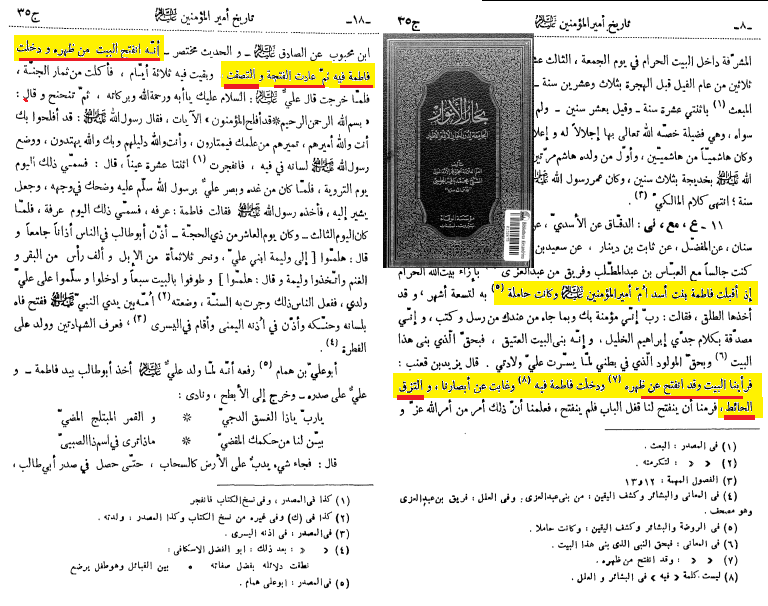 ج٣٥
تاريخ أمير المؤمنين عليه السلام
-٨-
المشرّفة داخل البيت الحرام في يوم الجمعة ، الثالث عشر
ثلاثين من عام الفيل قبل الهجرة بثلاث وعشرين سنة ـ
المبعث (١) باثنتي عشرة سنة ـ وقيل بعشر سنين ـ ولم
سواه ، وهي فضيلة خصّه الله تعالى بها إجلالاً له و إعلا
وكان هاشميّاً من هاشميّين ، وأوّل من ولده هاشم مرّتين
الله صلى الله عليه وآله بخديجة بثلاث سنين ، وكان عمر رسول الله
سنة ؛ انتهى كلام المالكيّ (٣) .
١١ ـ ع ، مع ، لى : الدقّاق عن الأسديّ ، عن
سنان ، عن المفضّل ، عن ثابت بن دينار ، عن سعيد بن
كنت جالساً مع العبّاس بن عبدالمطّلب وفريق من عبدالعزّى
بإزاء بيت الله الحرام
إذ أقبلت فاطمة بنت أسد اُمّ أمير المؤمنين عليه السلام وكانت حاملة (٥) به لتسعة أشهر ، و قد
أخذها الطلق ، فقالت : ربّ إنّي مؤمنة بك وبما جاء من عندك من رسل وكتب ، و إنّي
مصدّقة بكلام جدّي إبراهيم الخليل ، و إنّه بنى البيت العتيق ، فبحقّ الّذي بنى هذا
البيت (٦) وبحقّ المولود الّذي في بطني لمّا يسّرت عليّ ولادتي . قال يزيد بن قعنب :
فرأينا البيت وقد انفتح عن ظهره (٧) ودخلت فاطمة فيه (٨) وغابت عن أبصارنا ، و التزق
الحائط ، فرمنا أن ينفتح لنا قفل الباب فلم ينفتح ، فعلمنا أنّ ذلك أمر من أمر الله عزّ و
(١) فى المصدر : البعث .
(٢) « « : لتكرمته .
(٣) الفصول المهمة : ١٢و١٣
(٤) فى المعانى والبشائر وكشف اليقين : من بنى عبدالعزى . وفى العلل : فريق بن عبدالعزى
وهو مصحف .
(٥) فى الروضة والبشائر وكشف اليقين : وكانت حاملا .
(٦) فى المعانى : فبحق النبى الذى بنى هذا البيت .
(٧) « « : وقد انفتح من ظهره .
(٨) ليست كلمة « فيه » فى البشائر و العلل .
بحار الأنوار
الجامعة لدرر أخبار الأئمة الأطهار
تاريخ أمير المؤمنين عليه السلام
-١٨-
ج٣٥
ابن محبوب عن الصادق عليه السلام ـ و الحديث مختصر ـ إنّه انفتح البيت من ظهره و دخلت
فاطمة فيه ثمّ عادت الفتحة و التصقت ، وبقيت فيه ثلاثة أيّام ، فأكلت من ثمار الجنّة ،
فلمّا خرجت قال عليّ عليه السلام : السلام عليك يا أبه ورحمة الله وبركاته ، ثمّ تنحنح و قال :
« بسم الله الرحمن الرحيم قد أفلح المؤمنون » الآيات ، فقال رسول الله صلى الله عليه وآله : قد أفلحوا بك
أنت والله أميرهم ، تميرهم من علمك فيمتارون ، وأنت والله دليلهم وبك والله يهتدون ، ووضع
رسول الله صلى الله عليه وآله لسانه في فيه ، فانفجرت (١) اثنتا عشرة عيناً ، قال : فسمّي ذلك اليوم
يوم التروية ، فلمّا كان من غده وبصر عليّ برسول الله سلّم عليه وضحك في وجهه ، وجعل
يشير إليه ، فأخذه رسول الله صلى الله عليه وآله فقالت فاطمة : عرفه ، فسمّي ذلك اليوم عرفة ، فلمّا
كان اليوم الثالث ـ وكان يوم العاشر من ذي الحجّة ـ أذّن أبوطالب في الناس أذاناً جامعاً و
قال : هلمّوا [ إلى وليمة ابني عليّ ، ونحر ثلاثمأة من الإبل و ألف رأس من البقر و
الغنم واتّخذوا وليمة و قال : هلمّوا ] و طوفوا بالبيت سبعاً و ادخلوا و سلّموا على عليّ
ولدي ، ففعل الناس ذلك وجرت به السنّة ، وضعته (٢) اُمّه بين يدي النبيّ صلى الله عليه وآله ففتح فاه
بلسانه وحنّكه وأذّن في اُذنه اليمنى وأقام في اليسرى (٣) ، فعرف الشهادتين وولد على
الفطرة (٤) .
أبوعليّ بن همام (٥) رفعه أنّه لمّا ولد عليّ عليه السلام أخذ أبوطالب بيد فاطمة ـ و
عليّ على صدره ـ وخرج إلى الأبطح ، ونادى :
يا ربّ يا ذا الغسق الدجيّ * و القمر المبتلج المضيّ
بيّن لنا من حكمك المقضيّ * ماذا ترى في اسم ذا الصبيّ
قال : فجاء شيء يدبّ على الأرض كالسحاب ، حتّى حصل في صدر أبي طالب ،
(١) كذا فى المصدر ، وفى نسخ الكتاب فانفجر
(٢) كذا فى (ك) وفى غيره من نسخ الكتاب وكذا المصدر : ولدته .
(٣) فى المصدر : فى اذنه اليسرى .
(٤) « « : بعد ذلك : ابو الفضل الاسكافى :
نطقت دلائله بفضل صفاته * بين القبائل وهو طفل يرضع
(٥) فى المصدر : ابوعلى همام .